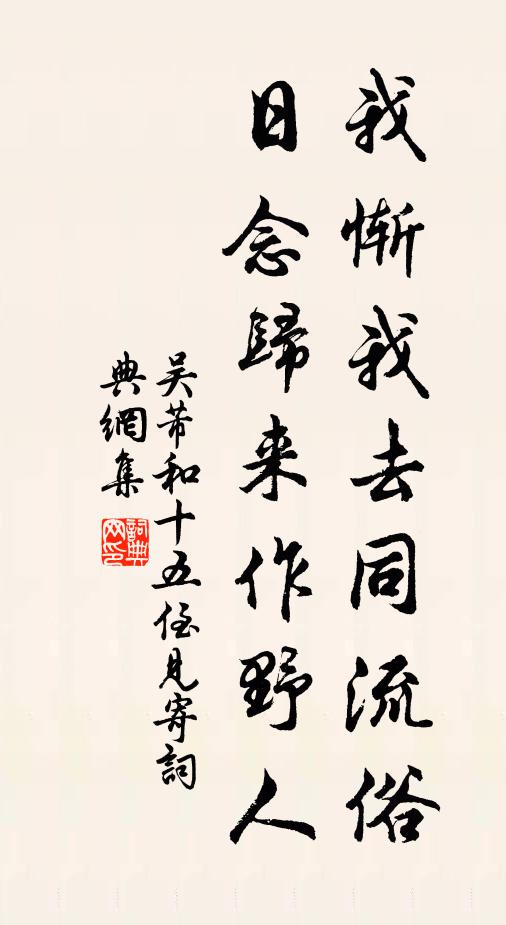 我惭我去同流俗
日念歸来作野人
吴芾和十五侄見寄詞
典網集
詞典网印